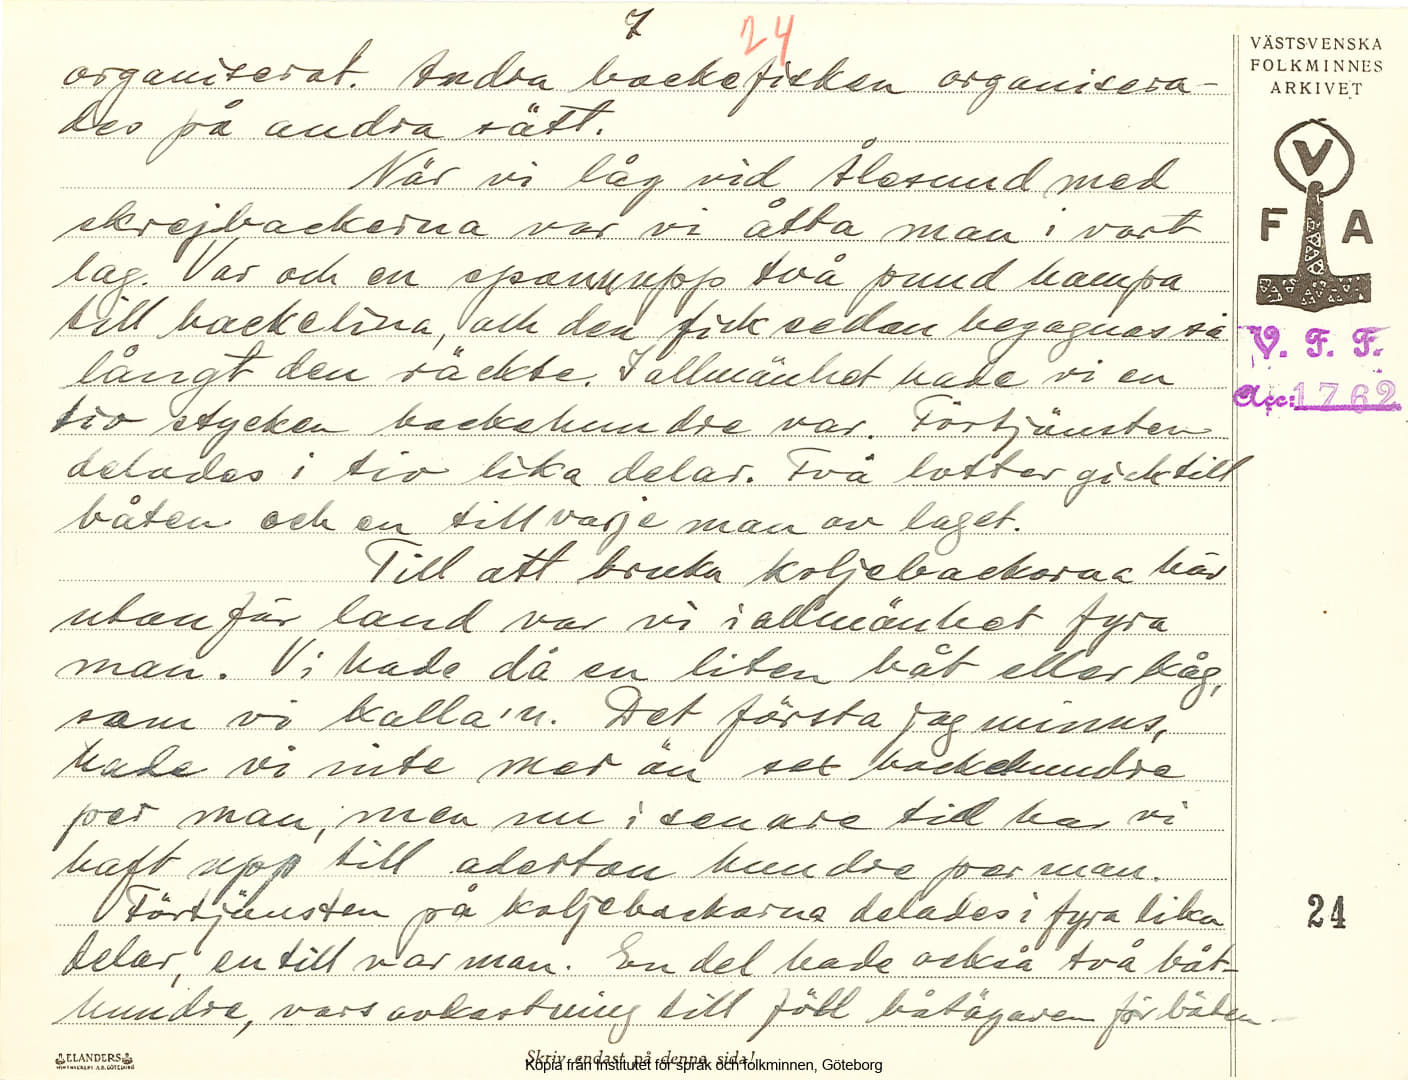 7
24
organiserat. Andra backefisken organisera-
des på andra sätt.
När vi låg vid Ålesund med
skrejbackerna var vi åtta man i vart
lag. Var och en spann upp två pund hampa
till backelina, och den fick sedan begagnas så
långt den räckte. I allmänhet hade vi en
tio stycken backehundre var. Förtjänsten
delades i tio lika delar. Två lotter gick till
båten och en till varje man av laget.
Till att bruka koljebackorna här
utanför land var vi i allmänhet fyra
man. Vi hade då en liten båt eller kåg,
som vi kalla'n. Det första jag minns,
hade vi inte mer än sex backehundre
per man, men nu i senare tid har vi
haft upp till aderton hundre per man.
Förtjänsten på koljebackorna delades i fyra lika
delar, en till var man. En del hade också två båt-
hundre, vars avkastning till föll båtägaren för båten
VÄSTSVENSKA
FOLKMINNES
ARKIVET
V
F A
V. F. F.
Acc: 1762
24
ELANDERS
Skriv endast på denna sida!
Kopia från Institutet för språk och folkminnen, Göteborg